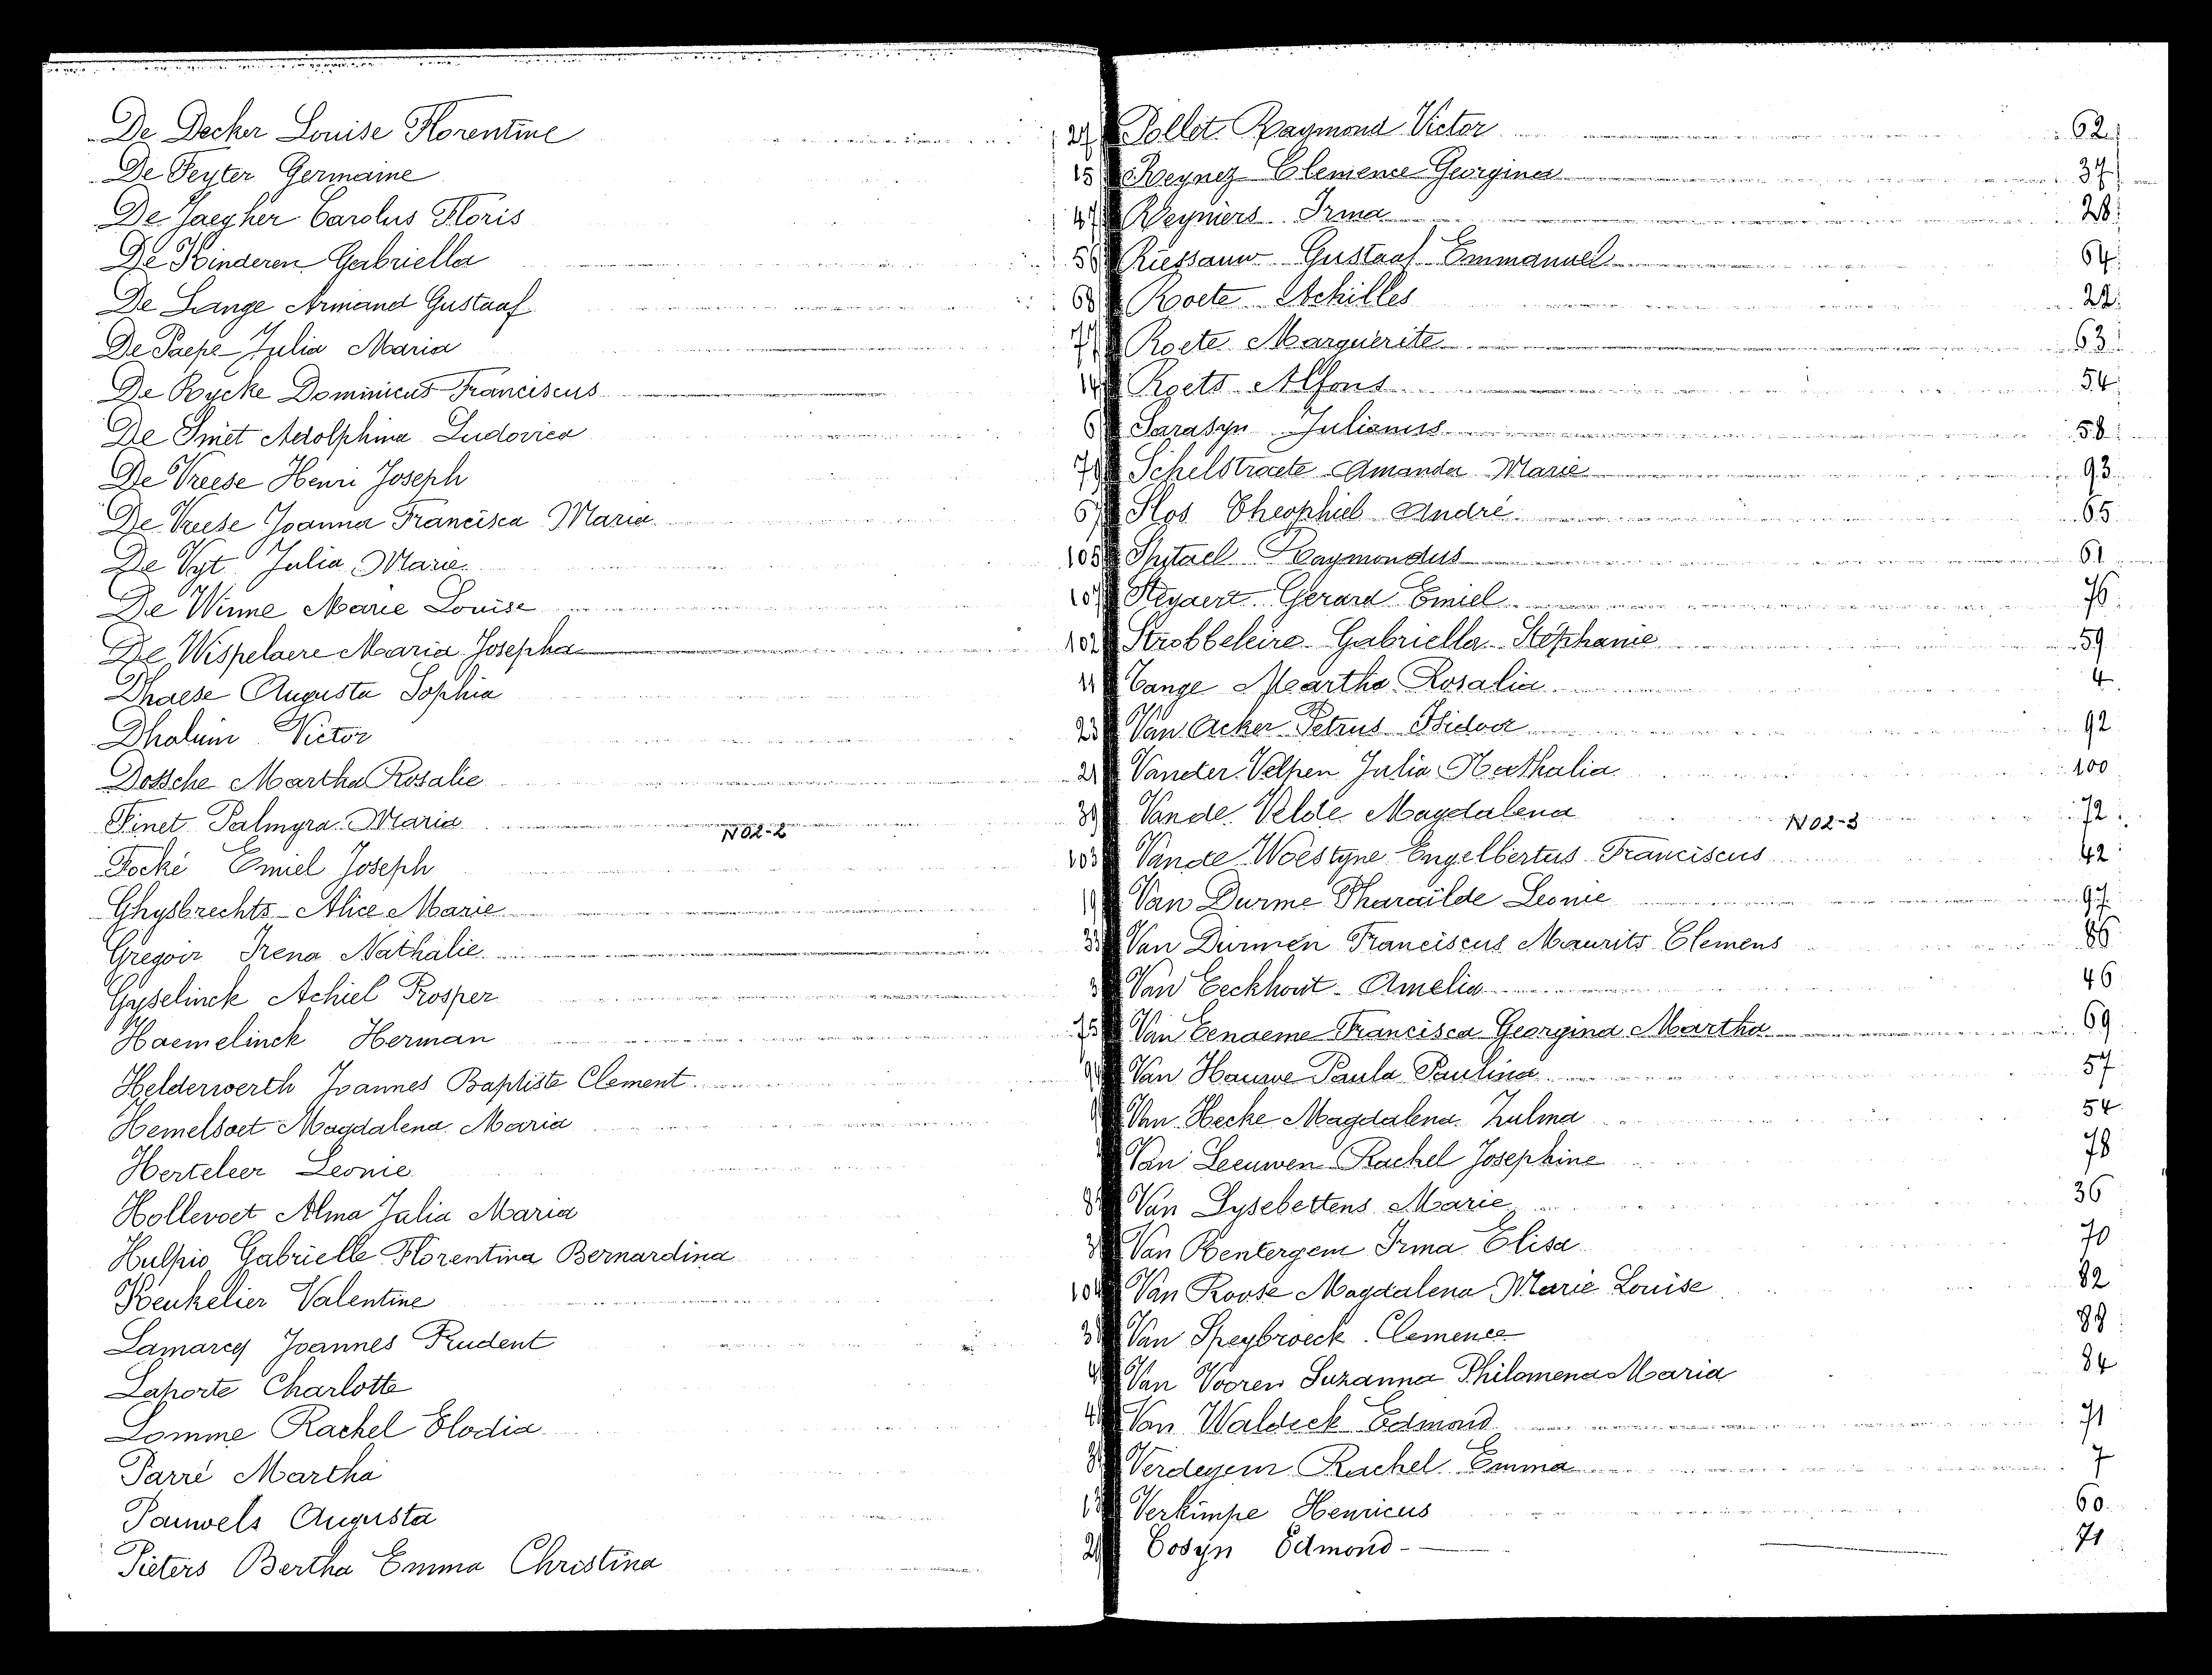 De Decker Louise Florentine 27
De Feyter Germaine 15
De Jaegher Carolus Floris 47
De Kinderen Gabriella 56
De Lange Armand Gustaaf 68
De Paepe Julia Maria 77
De Rycke Dominicus Franciscus 14
De Smet Adolphina Ludovica 6
De Vreese Henri Joseph 79
De Vreese Joanna Francisca Maria 67
De Vyt Julia Marie 105
De Winne Marie Louise 107
De Wispelaere Maria Josepha 102
Dhaese Augusta Sophia 11
Dhaluin Victor 23
Dossche Martha Rosalie 21
Finet Palmyra Maria 39
N02-2
Focké Emiel Joseph 103
Ghysbrechts Alice Marie 19
Gregoir Irena Nathalie 33
Gyselinck Achiel Prosper
Haemelinck Herman 75
Helderwerth Joannes Baptiste Clement
Hemelsoet Magdalena Maria
Herteleer Leonie
Hollevoet Alma Julia Maria
Hulpio Gabrielle Florentina Bernardina
Keukelier Valentine 104
Lamarcq Joannes Prudent
Laporte Charlotte
Lomme Rachel Elodia
Parré Martha
Pauwels Augusta
Pieters Bertha Emma Christina
Pollet Raymond Victor 62
Reynez Clemence Georgina 37
Reyniers Irma 28
Riessauw Gustaaf Emmanuel 64
Roete Achilles 22
Roete Marguerite 63
Roets Alfons 54
Sarasyn Julianus 58
Schelstraete Amanda Marie 93
Slos Theophiel André 65
Spitael Raymondus 61
Steyaert Gerard Emiel 76
Strobbeleire Gabriella Stéphanie 59
Tange Martha Rosalia 4
Van Acker Petrus Isidoor 92
Vander Velpen Julia Nathalia 100
Vande Velde Magdalena 72
N02-3
Vande Woestyne Engelbertus Franciscus 42
Van Durme Pharaïlde Leonie 97
Van Durmen Franciscus Maurits Clemens 86
Van Eeckhout Amelia 46
Van Eenaeme Francisca Georgina Martha 69
Van Hauwe Paula Paulina 57
Van Hecke Magdalena Zulma 54
Van Leeuwen Rachel Josephine 78
Van Lysebettens Marie 36
Van Rentergem Irma Elisa 70
Van Roose Magdalena Marie Louise 82
Van Speybroeck Clemence 89
Van Vooren Suzanna Philomena Maria 84
Van Waldeck Edmond 71
Verdegem Rachel Emma 7
Verkimpe Henricus 60
Cosyn Edmond 71